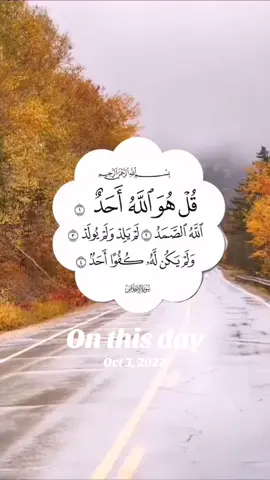 بسم الله الرحمن الرحيم
قُلْ هُوَ ٱللَّهُ أَحَدٌ ١
ٱللَّهُ ٱلصَّمَدُ ٢ لَمْ يَلِدْ وَلَمْ يُولَدْ ٣
وَلَمْ يَكُن لَّهُۥ كُفُوًا أَحَدٌۢ ٤
سورة الإخلاص
On this day
Oct 3, 2022